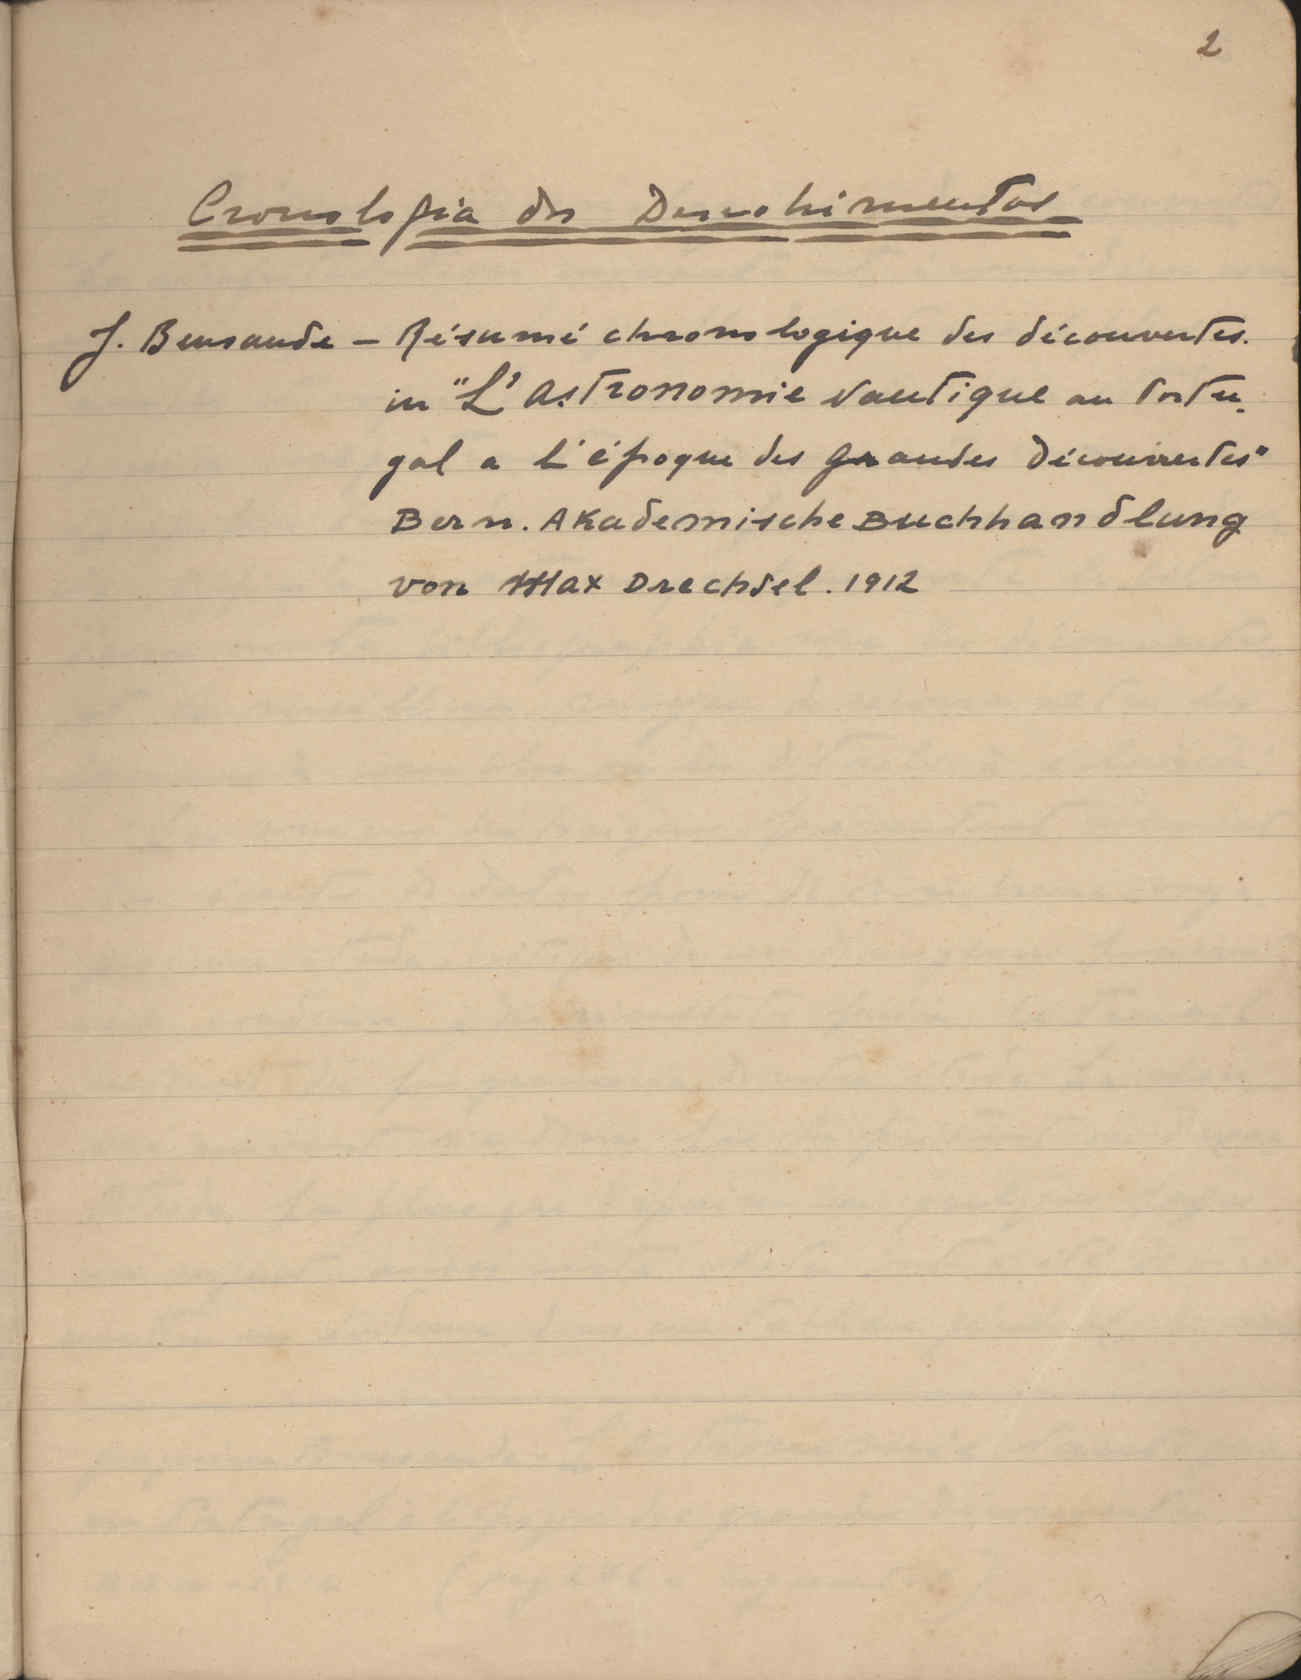 2
Cronologia dos Descobrimentos
J. Bensaude – Résumé chronologique des découvertes.
in "L'Astronomie Nautique au Portu-
gal a l'époque des Grandes Découvertes"
Bern. Akademische Buchhandlung
von Max Drechsel. 1912